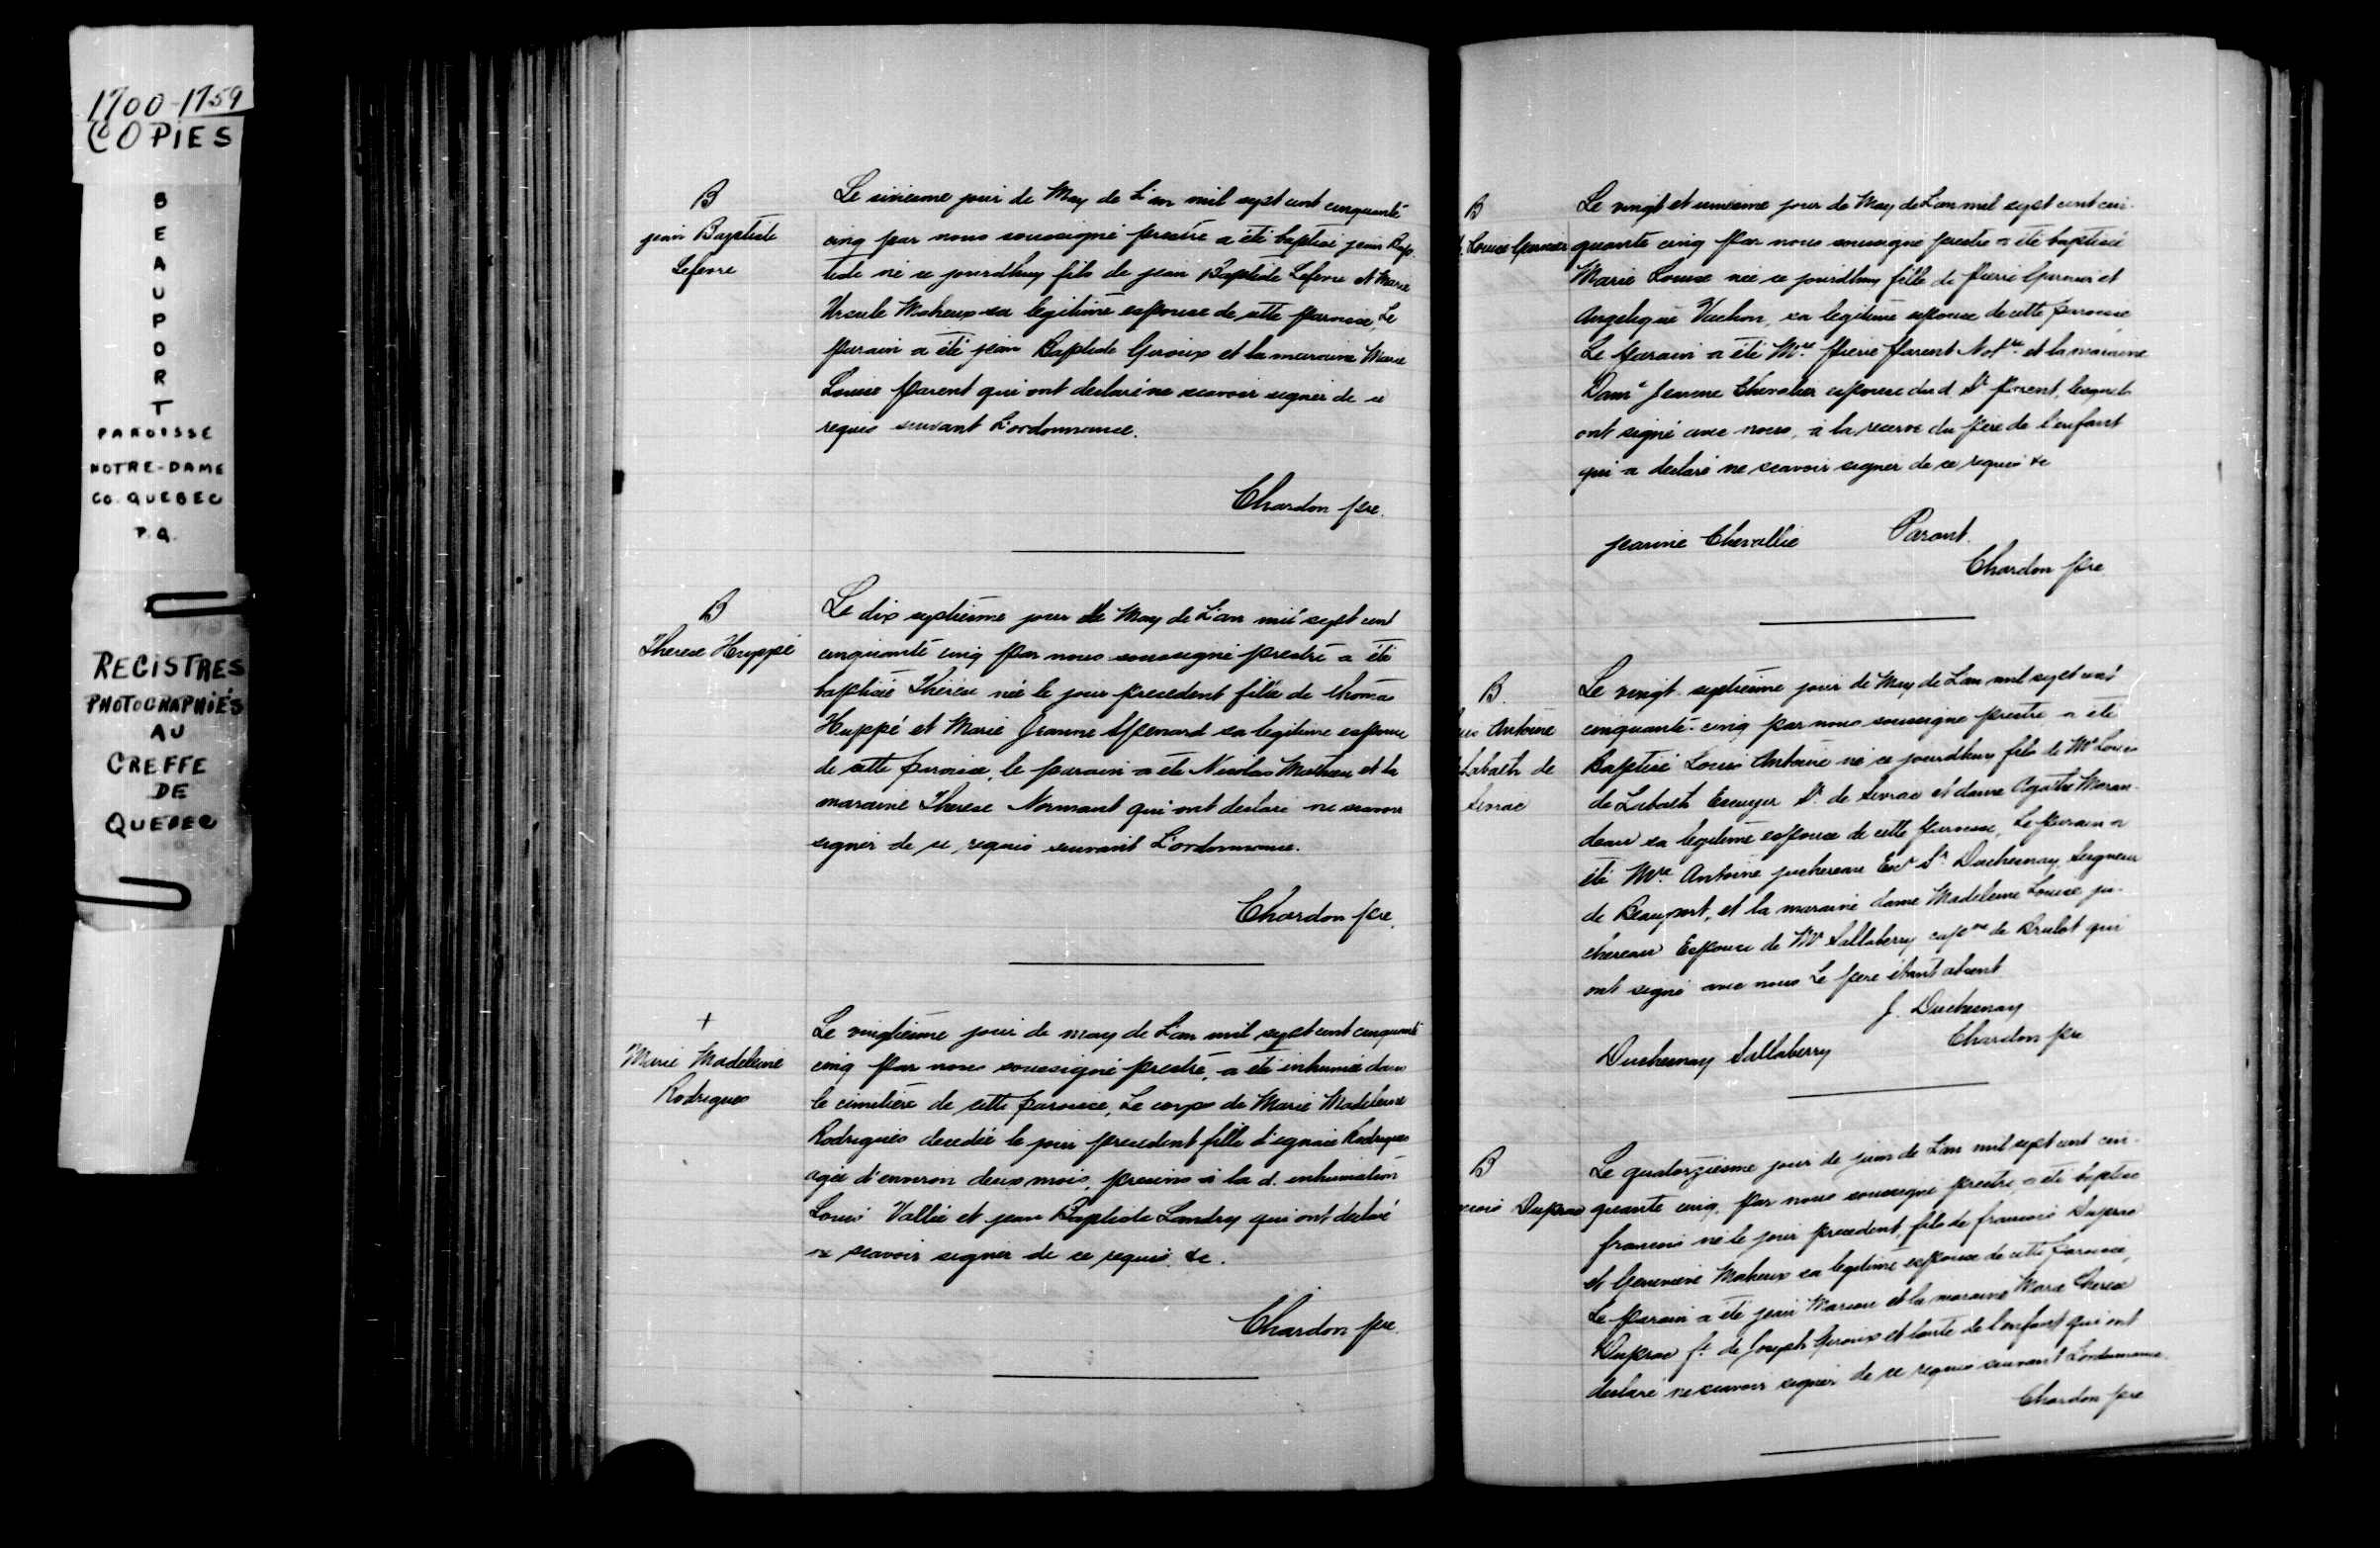 1700-1759
COPIES
BEAUPORT
PAROISSE
NOTRE-DAME
CO. QUEBEC
P.Q.
REGISTRES
PHOTOGRAPHIÉS
AU
GREFFE
DE
QUEBEC
B
jean Baptiste
Lefevre
Le sixieme jour de May de L'an mil sept cent cinquante
cinq par nous soussigné prestre a été baptisé jean Bap
tiste né ce jourdhuy fils de jean Baptiste Lefevre et Marie
Ursule Maheux sa legitime espouse de cette paroisse, Le
parain a été jean Baptiste Giroux et la maraine Marie
Louise parent qui ont declaré ne scavoir signer de ce
requis suivant L'ordonnance.
Chardon pre.
B
Therese Huppé
Le dix septieme jour de May de L'an mil sept cent
cinquante cinq par nous soussigné prestre a été
baptisée Thérèse née le jour precedent fille de thomas
Huppé et Marie Jeanne sa legitime espouse
de cette paroisse, le parain a été Nicolas et la
maraine Therese Normant qui ont declaré ne scavoir
signer de ce requis suivant L'ordonnance.
Chardon pre.
+
Marie Madeleine
Rodrigues
Le vingtieme jour de may de L'an mil sept cent cinquante
cinq par nous soussigné prestre, a été inhumée dans
le cimetiere de cette paroisse, Le corps de Marie Madeleine
Rodrigues decedée le jour precedent fille d'ignace Rodrigues
agée d'environ deux mois, presens à la d. inhumation
Louis Vallée et jean Baptiste Landry qui ont declaré
ne scavoir signer de ce requis. &c.
Chardon pre.
B
Louise Garnier
Le vingt et unieme jour de May de L'an mil sept cent cin-
quante cinq par nous soussigné prestre a été baptisée
Marie Louise née ce jourdhuy fille de pierre Garnier et
Angelique Vachon, sa legitime espouse de cette paroisse
Le parain a été Mre. pierre parent Notre. et la maraine
Dame Jeanne Chevalier espouse dud. Sr parent, lesquels
ont signé avec nous, à la reserve du pere de l'enfant
qui a declaré ne scavoir signer de ce requis &c
jeanne Chevallie Parent.
Chardon pre
B.
Antoine
Labath de
Sevrac
Le vingt septieme jour de May de L'an mil sept cent
cinquante-cinq par nous soussigné prestre a été
Baptisé Louis Antoine né ce jourdhuy fils de Mr Louis
de Labath Escuyer Sr. de Sevrac et dame Agathe Maran-
deau sa legitime espouse de cette paroisse, Le parain a
été Mre. Antoine juchereau Escr Sr. Duchesnay, Seigneur
de Beauport, et la maraine dame Madeleine Louise ju-
chereau Espouse de Mr Sallaberry capne de Brulot qui
ont signé avec nous Le pere étant absent
J. Duchesnay
Duchesnay Sallaberry Chardon pre
B
Duprac
Le quatorzieme jour de juin de L'an mil sept cent cin-
quante cinq, par nous soussigné prestre, a été baptisé
francois né le jour precedent, fils de francois Duprac
et Genevieve Maheux sa legitime espouse de cette paroisse,
Le parain a été jean Marcou et la maraine Marie Therese
Duprac fe. de Joseph Giroux et tante de l'enfant qui ont
declaré ne scavoir signer de ce requis suivant L'ordonnance.
Chardon pre